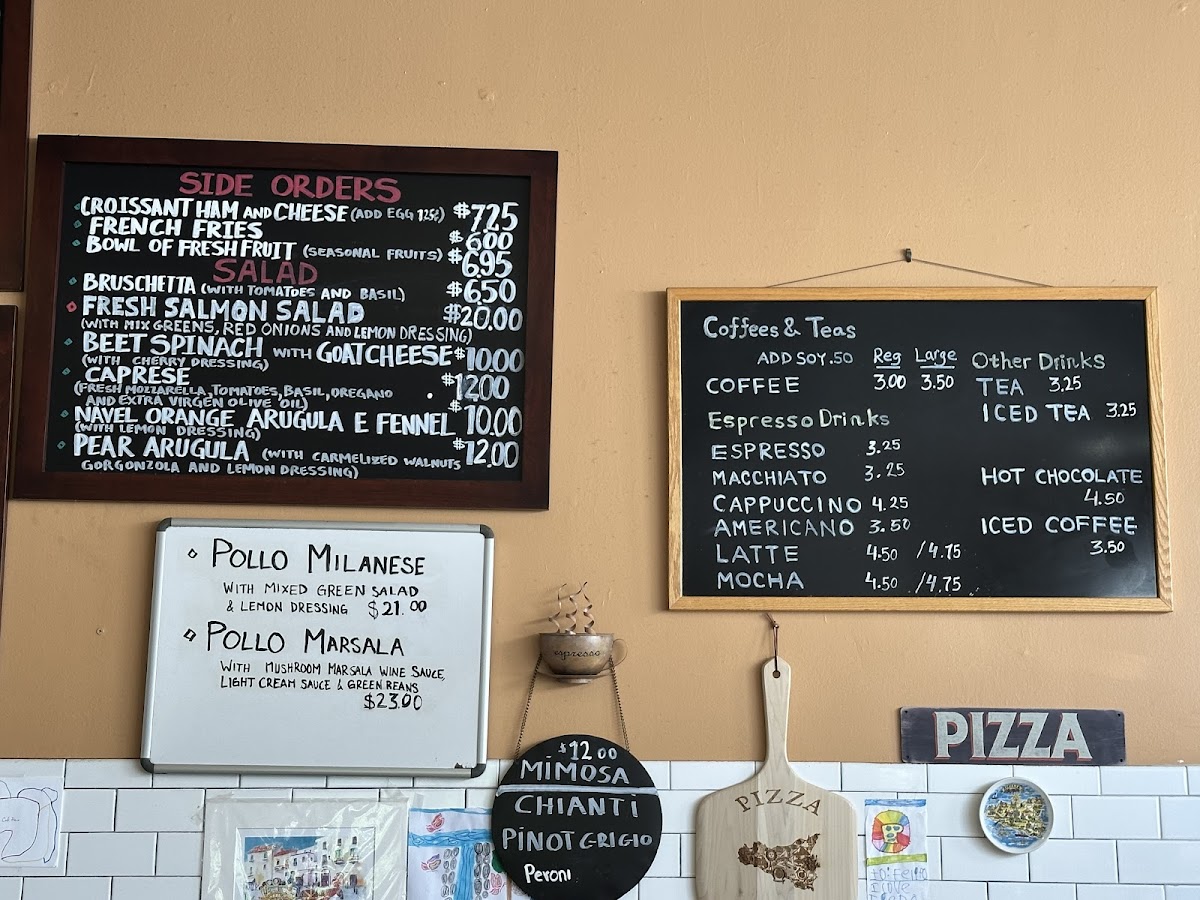 SIDE ORDERS
CROISSANT HAM AND CHEESE (ADD EGG 1.25¢) $7.25
FRENCH FRIES $6.00
BOWL OF FRESH FRUIT (SEASONAL FRUITS) $6.95
SALAD
BRUSCHETTA (WITH TOMATOES AND BASIL) $6.50
FRESH SALMON SALAD $20.00
(WITH MIX GREENS, RED ONIONS AND LEMON DRESSING)
BEET SPINACH WITH GOAT CHEESE $10.00
(WITH CHERRY DRESSING)
CAPRESE $12.00
(FRESH MOZZARELLA, TOMATOES, BASIL, OREGANO
AND EXTRA VIRGEN OLIVE OIL)
NAVEL ORANGE ARUGULA E FENNEL $10.00
(WITH LEMON DRESSING)
PEAR ARUGULA (WITH CARMELIZED WALNUTS $12.00
GORGONZOLA AND LEMON DRESSING)
POLLO MILANESE
WITH MIXED GREEN SALAD
& LEMON DRESSING $21.00
POLLO MARSALA
WITH MUSHROOM MARSALA WINE SAUCE,
LIGHT CREAM SAUCE & GREEN BEANS
$23.00
espresso
$12.00
MIMOSA
CHIANTI
PINOT GRIGIO
Peroni
Coffees & Teas
ADD SOY .50 Reg Large
COFFEE 3.00 3.50
Espresso Drinks
ESPRESSO 3.25
MACCHIATO 3.25
CAPPUCCINO 4.25
AMERICANO 3.50
LATTE 4.50 / 4.75
MOCHA 4.50 / 4.75
Other Drinks
TEA 3.25
ICED TEA 3.25
HOT CHOCOLATE
4.50
ICED COFFEE
3.50
PIZZA
PIZZA
I LOVE